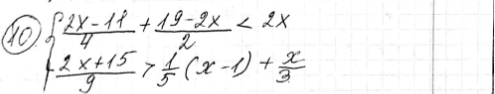 10) { (2x-11)/4 + (19-2x)/2 < 2x
(2x+15)/9 > 1/5 (x-1) + x/3